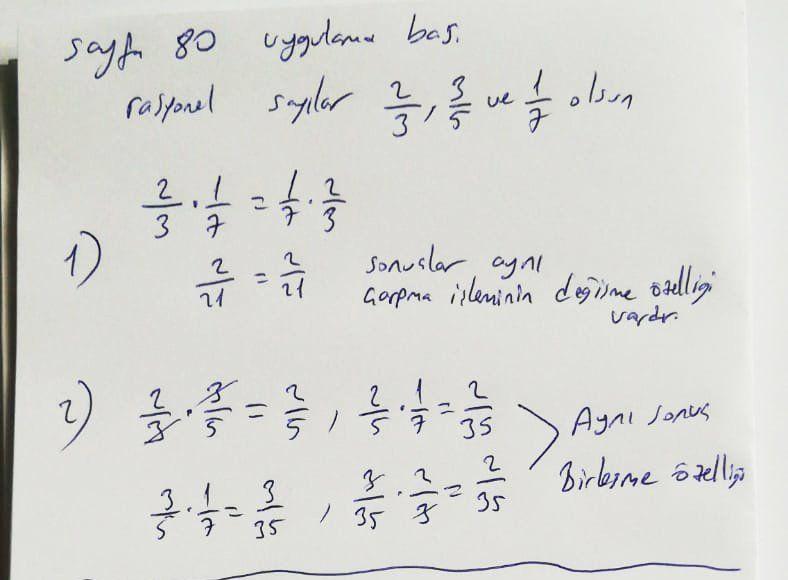 sayfa 80 uygulama bas.
rasyonel sayılar 2/3, 3/5 ve 1/7 olsun
1) 2/3 . 1/7 = 1/7 . 2/3
2/21 = 2/21 sonuçlar aynı
çarpma işleminin değişme özelliği
vardır.
2) 2/3 . 3/5 = 2/5 , 2/5 . 1/7 = 2/35 Aynı sonuç
3/5 . 1/7 = 3/35 , 3/35 . 2/3 = 2/35 Birleşme özelliği